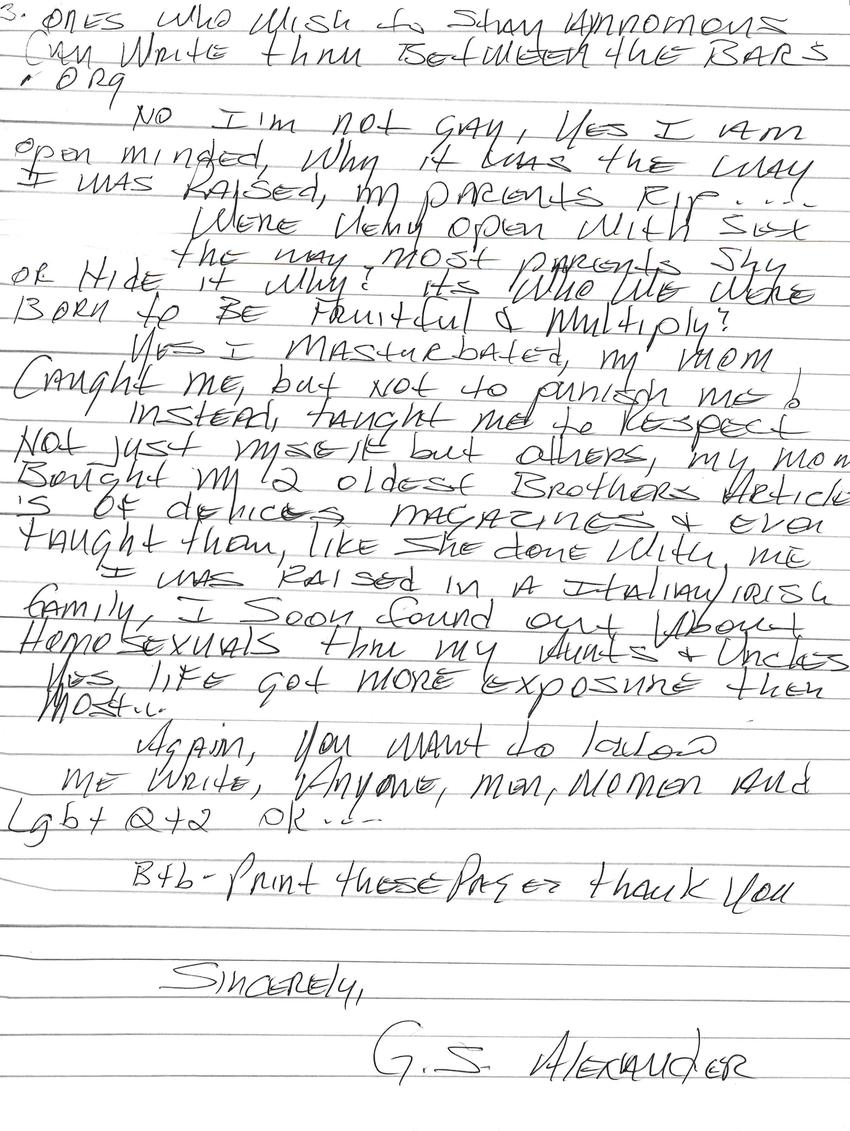 3. ONES WHO WISH to Stay ANNOMOUS
CAN WRITE thru BetWEEN the BARS
. ORg
NO I'm not GAY, YES I AM
open minded, Why it WAS the WAY
I WAS RAISED, my PARENTS RIP.....
WERE Very open With Sex
the way most PARENTS Shy
OR HIDE it Why? its Who WE WERE
BORN to BE Fruitful & Multiply?
YES I MASturbated, my mom
Caught me, but not to punish me!
Instead, taught me to RESPECT
Not just myself but others, my mom
Bought my 2 oldest Brothers Article
's OF devices, MAGAZINES & even
taught them, like She done With me
I WAS RAISED in A ItALIAN/IRISh
family, I Soon found out About
HomosEXUALS thru my Aunts & Uncles
YES LIFE got MORE EXPOSURE then
Most...
AgAin, You WANT to know
ME WRITE, ANYONE, men, WOMEN And
Lgbt Q+2 OK....
Btb- Print these Pages thank You
SINCERELY,
G.S. AlexandER